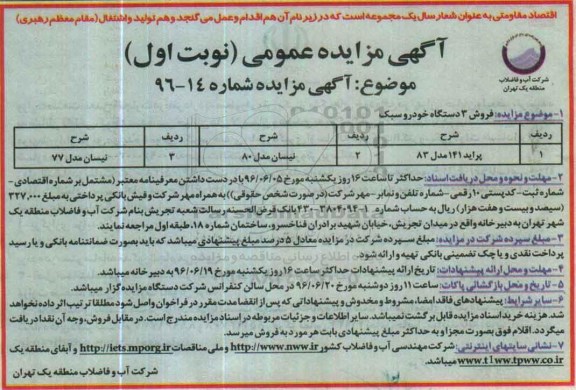 اقتصاد مقاومتی به عنوان شعار سال یک مجموعه است که در زیر نام آن هم اقدام و عمل می گنجد و هم تولید و اشتغال (مقام معظم رهبری)
آگهی مزایده عمومی (نوبت اول)
موضوع: آگهی مزایده شماره ۱۴-۹۶
شرکت آب و فاضلاب
منطقه یک تهران
۱-موضوع مزایده: فروش ۳ دستگاه خودرو سبک
ردیف شرح ردیف شرح ردیف شرح
۱ پراید ۱۴۱ مدل ۸۳ ۲ نیسان مدل ۸۰ ۳ نیسان مدل ۷۷
۲-مهلت و نحوه و محل دریافت اسناد: حداکثر تا ساعت ۱۶ روز یکشنبه مورخ ۹۶/۰۶/۰۵ با در دست داشتن معرفینامه معتبر (مشتمل بر شماره اقتصادی-
شماره ثبت - کدپستی ۱۰ رقمی - شماره تلفن و نمابر - مهر شرکت (در صورت شخص حقوقی)) به همراه مهر شرکت و فیش بانکی پرداختی به مبلغ ۳۲۷,۰۰۰
(سیصد و بیست و هفت هزار) ریال به حساب شماره بانک قرض الحسنه رسالت شعبه تجریش بنام شرکت آب و فاضلاب منطقه یک
شهر تهران به دبیرخانه واقع در میدان تجریش، خیابان شهید برادران فناخسرو، ساختمان شماره ۱۸، طبقه اول مراجعه نمایند.
۳-مبلغ سپرده شرکت در مزایده: مبلغ سپرده شرکت در مزایده معادل ۵ درصد مبلغ پیشنهادی میباشد که باید بصورت ضمانتنامه بانکی و یا رسید
پرداخت نقدی و یا چک تضمینی بانکی تهیه و ارائه شود.
۴-مهلت و محل ارائه پیشنهادات: تاریخ ارائه پیشنهادات حداکثر ساعت ۱۶ روز یکشنبه مورخ ۹۶/۰۶/۱۹ به دبیر خانه میباشد.
۵-تاریخ و محل بازگشائی پاکات: ساعت ۱۱ روز دوشنبه مورخ ۹۶/۰۶/۲۰ در محل سالن کنفرانس شرکت دستگاه مزایده گزار میباشد.
۶-سایر شرایط: پیشنهادهای فاقد امضا، مشروط و مخدوش و پیشنهاداتی که پس از انقضا مدت مقرر در فراخوان واصل شود مطلقا ترتیب اثر داده نخواهد
شد. هزینه خرید اسناد مزایده قابل برگشت نمیباشد. سایر اطلاعات و جزئیات مربوطه در اسناد مزایده مندرج است. در مقابل فروش، وجه آن نقدا دریافت
میگردد. اقلام فوق بصورت مجزا و به حداکثر مبلغ پیشنهادی بابت هر مورد به فروش میرسد.
۷-نشانی سایتهای اینترنتی: شرکت مهندسی آب و فاضلاب کشور http://www.nww.ir و ملی مناقصات http://iets.mporg.ir و آبفای منطقه یک
www.t1ww.tpww.co.ir میباشد.
شرکت آب و فاضلاب منطقه یک تهران